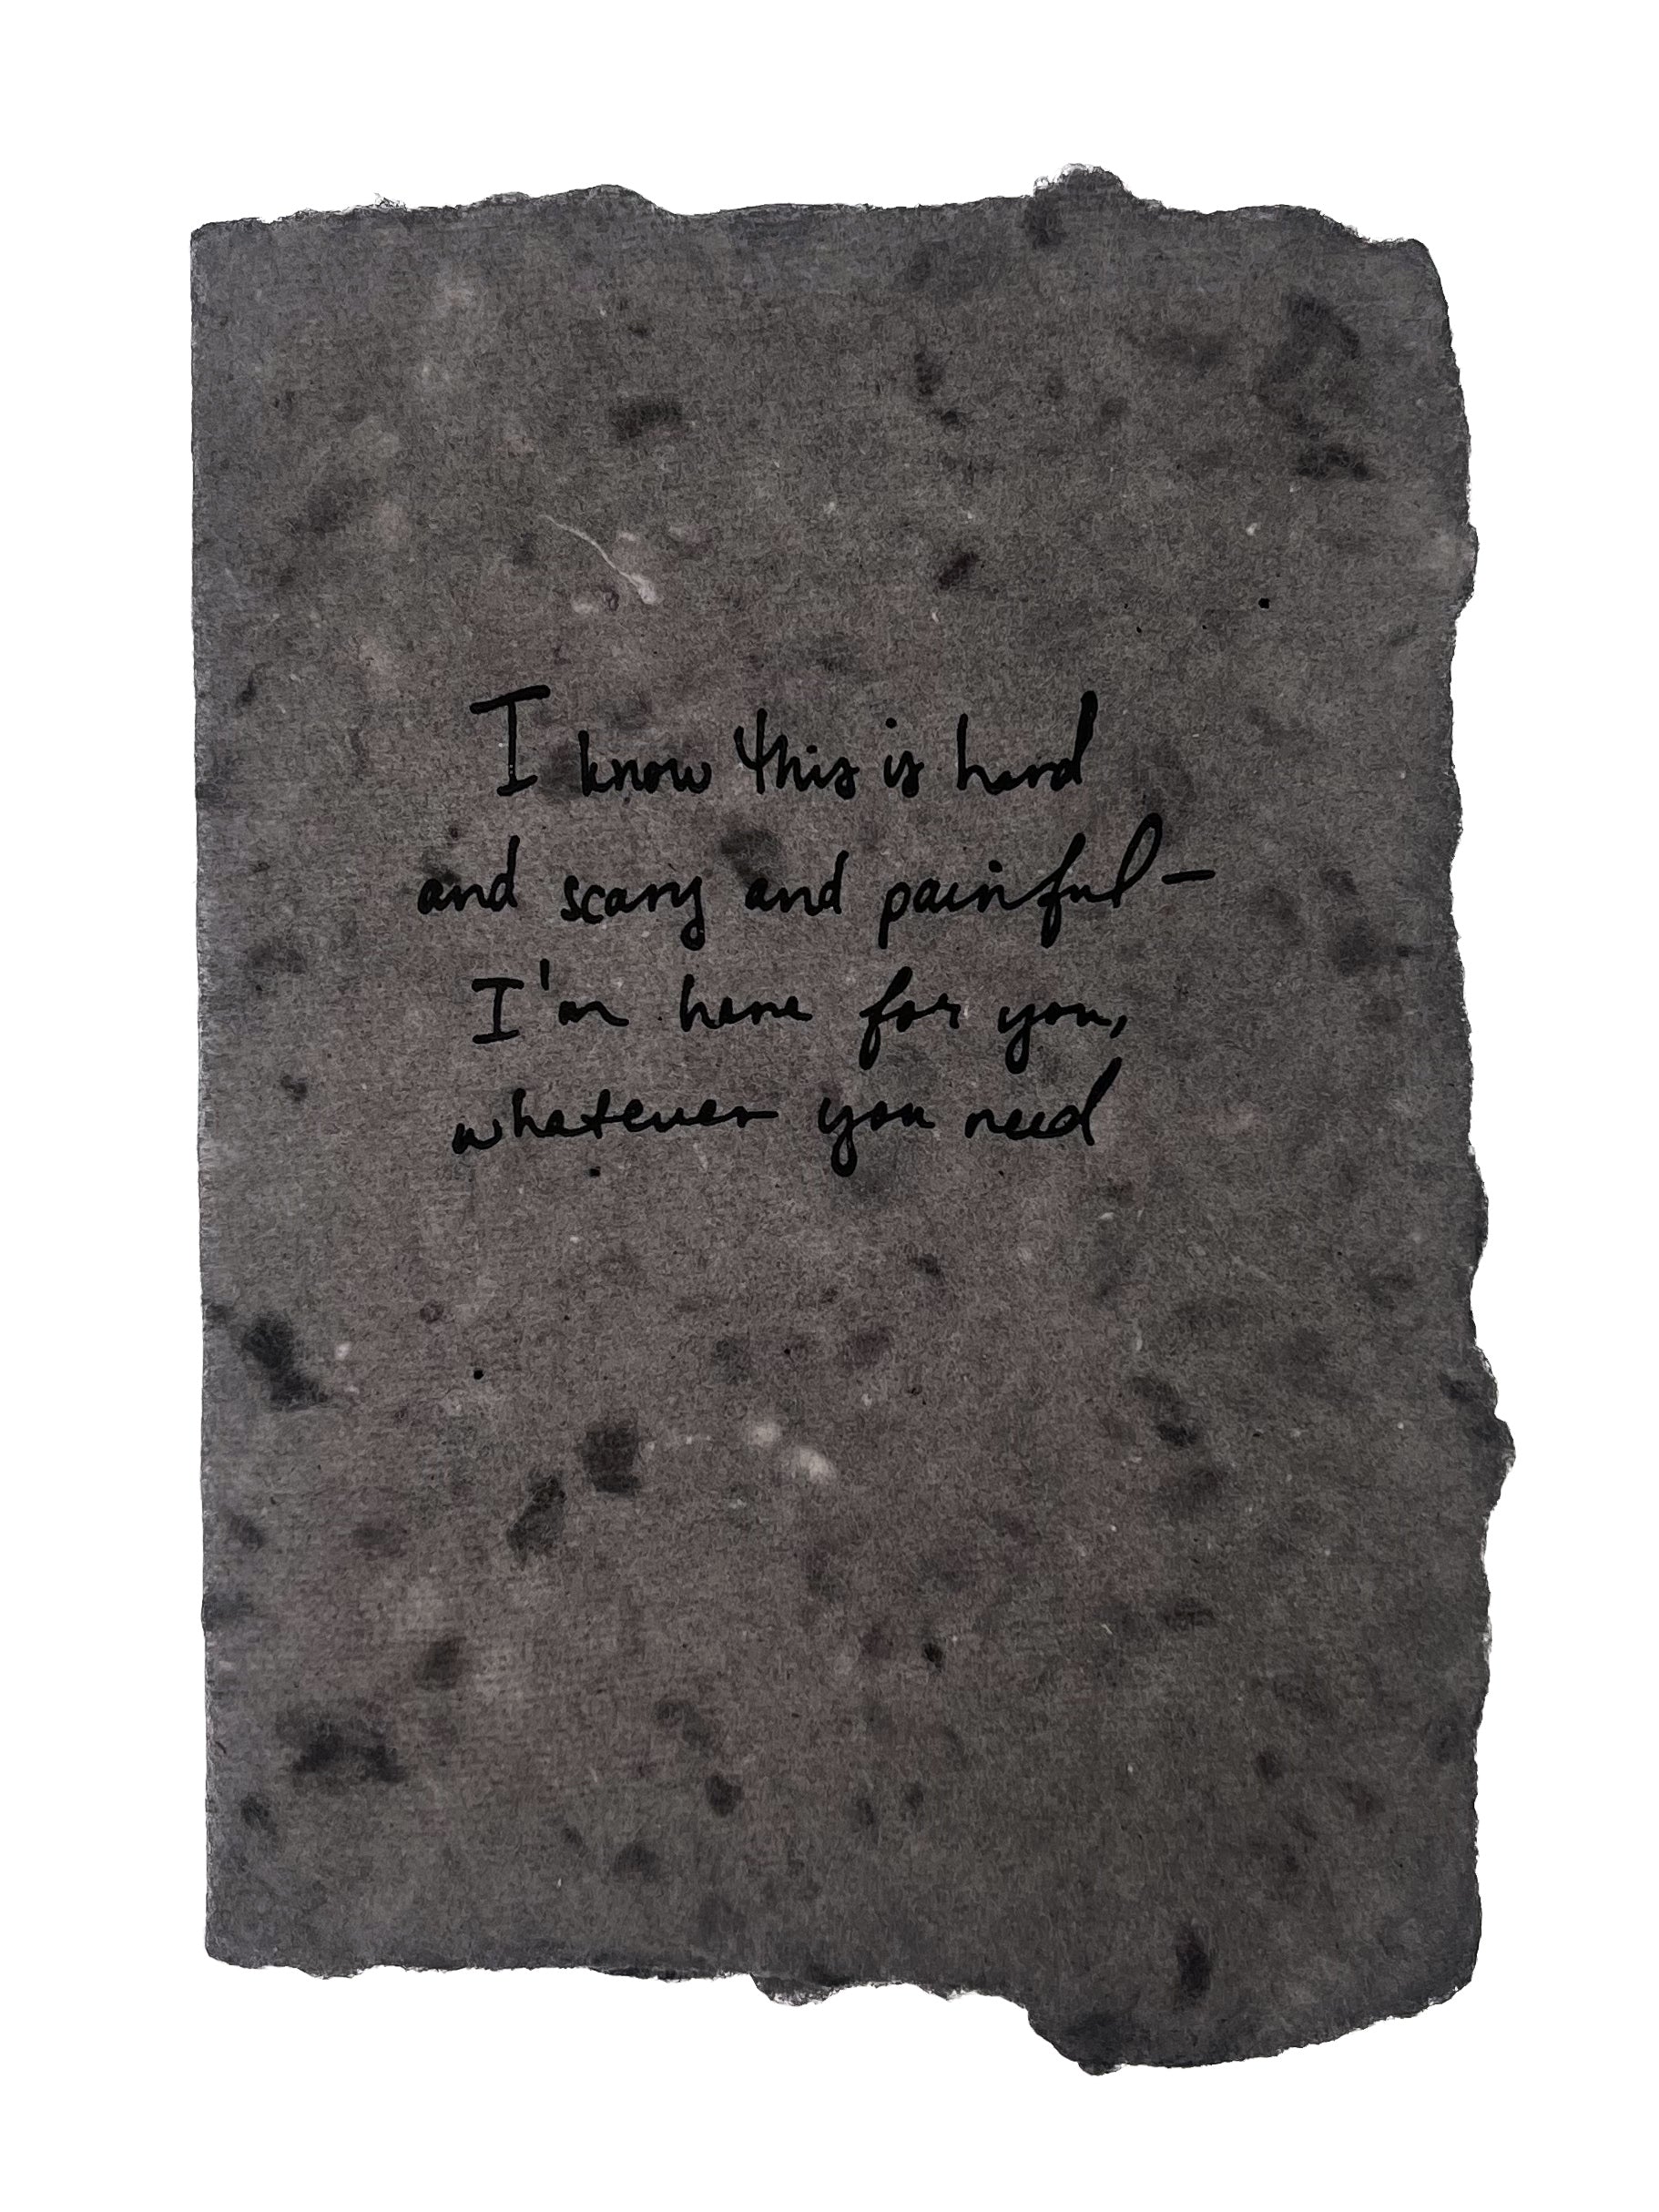 I know this is hard
and scary and painful—
I'm here for you,
whatever you need